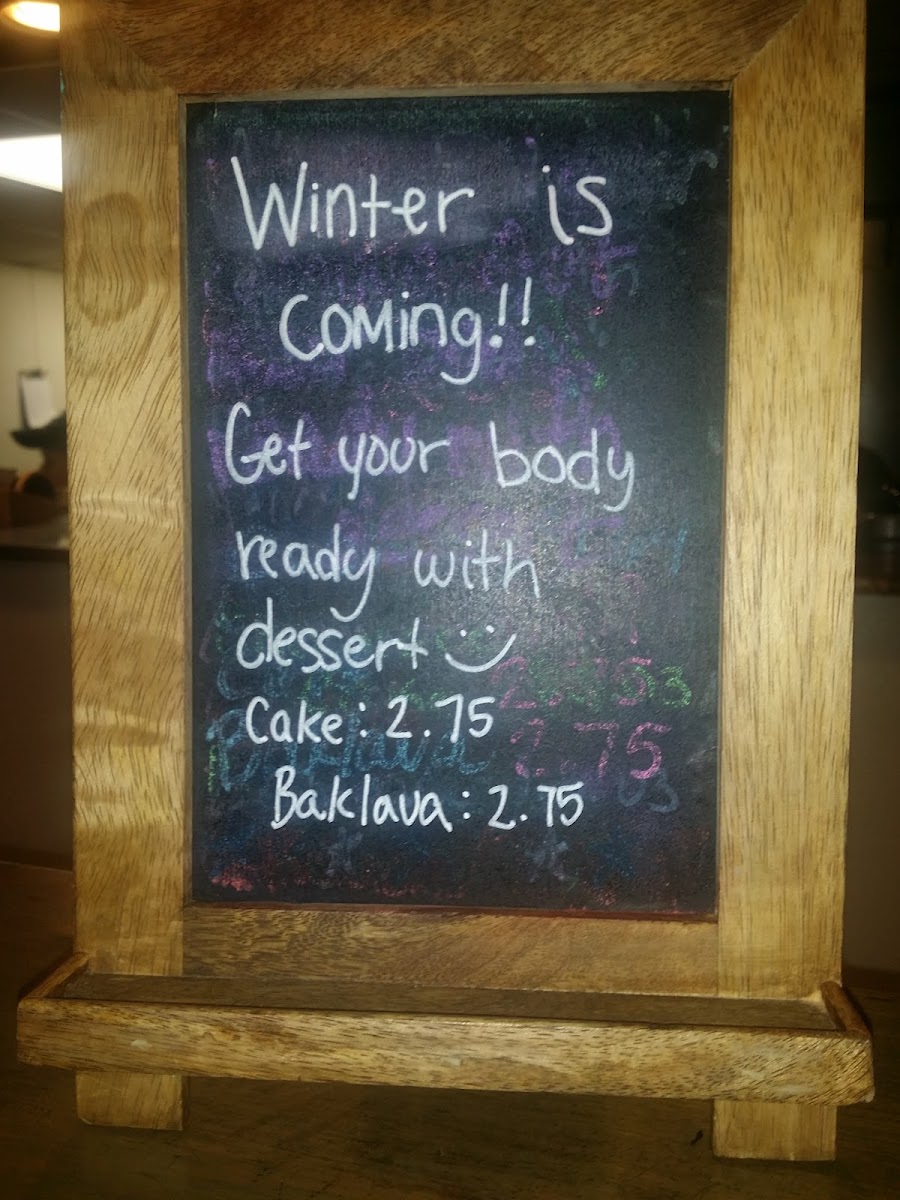 Winter is
Coming!!
Get your body
ready with
dessert
Cake: 2.75
Baklava: 2.75
2.75
3
Baklava 2.75